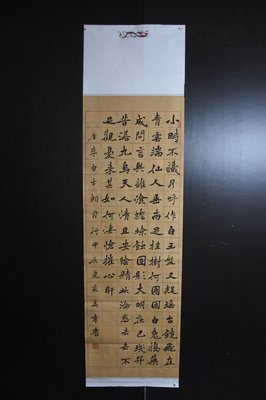 小時不識月呼作白玉盤又疑瑤台鏡飛在
青雲端仙人垂兩足桂樹何團團白兔搗藥
成問言與誰飡蟾蜍蝕圓影大明夜已殘羿
昔落九烏天人清且安陰精此淪惑去去不
足觀憂來其如何悽愴摧心肝
唐李白古朗月行甲辰夏